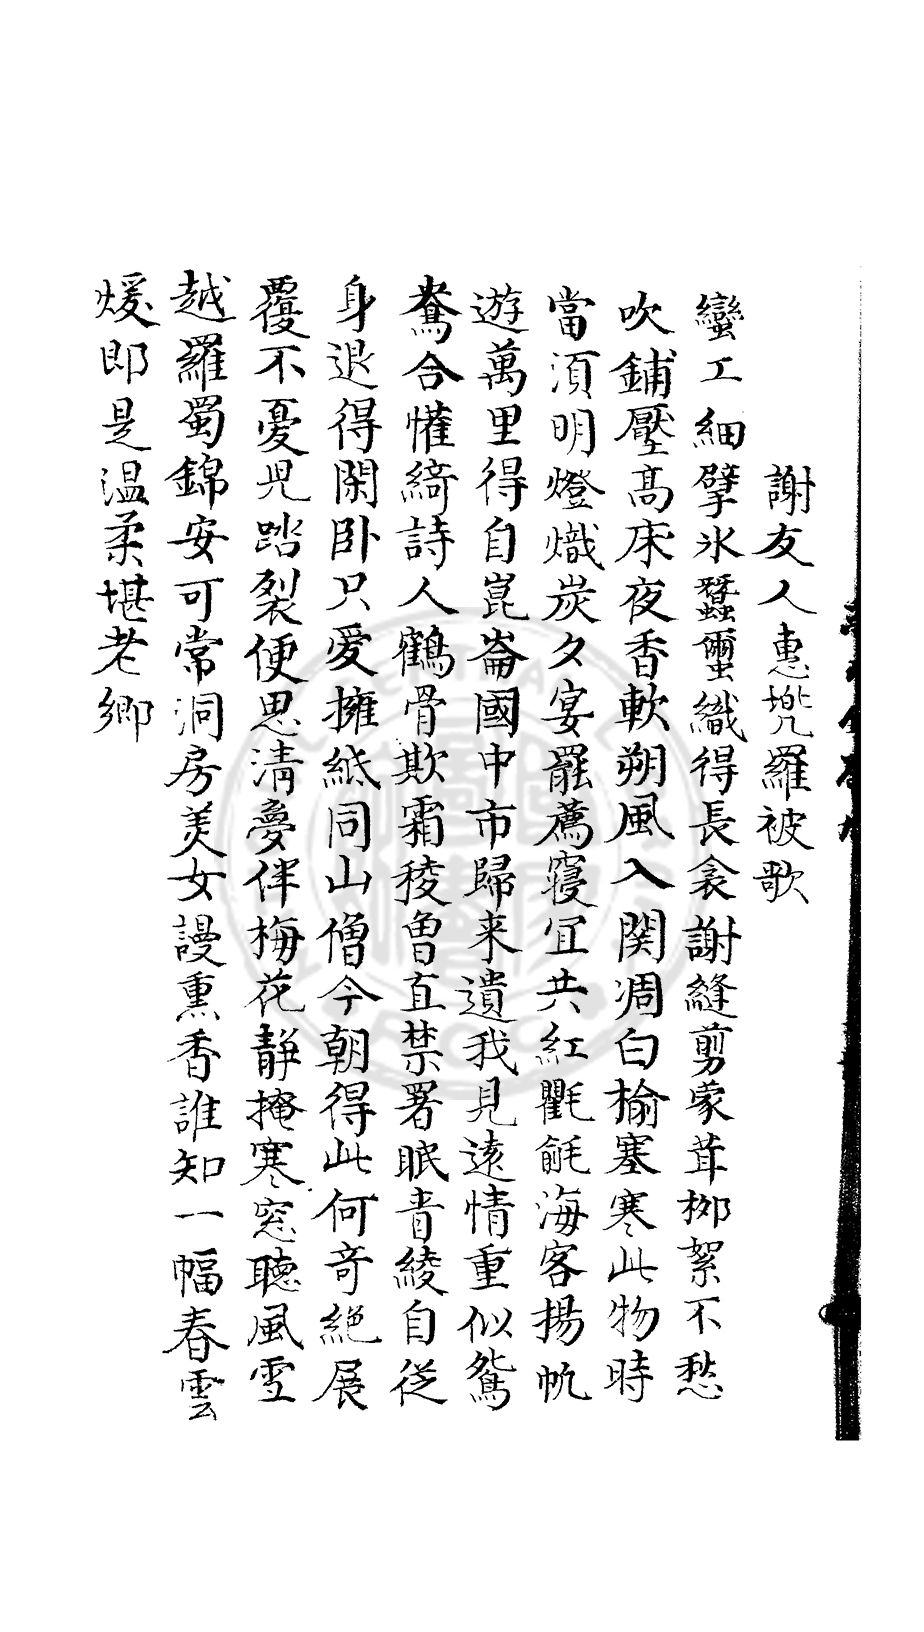 謝友人惠兠羅被歌
蠻工細擘氷蠶蠒織得長衾謝縫剪蒙茸栁絮不愁
吹鋪壓髙床夜香軟朔風入関凋白榆塞寒此物時
當湏明燈熾炭夕宴罷薦寢冝共紅氍毹海客揚帆
遊萬里得自崑崙國中市歸来遺我見遠情重似鴛
鴦合懽綺詩人鶴骨欺霜稜曽直禁署眠青綾自從
身退得閑卧只愛擁紙同山僧今朝得此何竒絕展
覆不憂兒踏裂便思清夢伴梅花靜掩寒窓聽風雪
越羅蜀錦安可常洞房美女謾熏香誰知一幅春雲
煖即是温柔堪老鄉